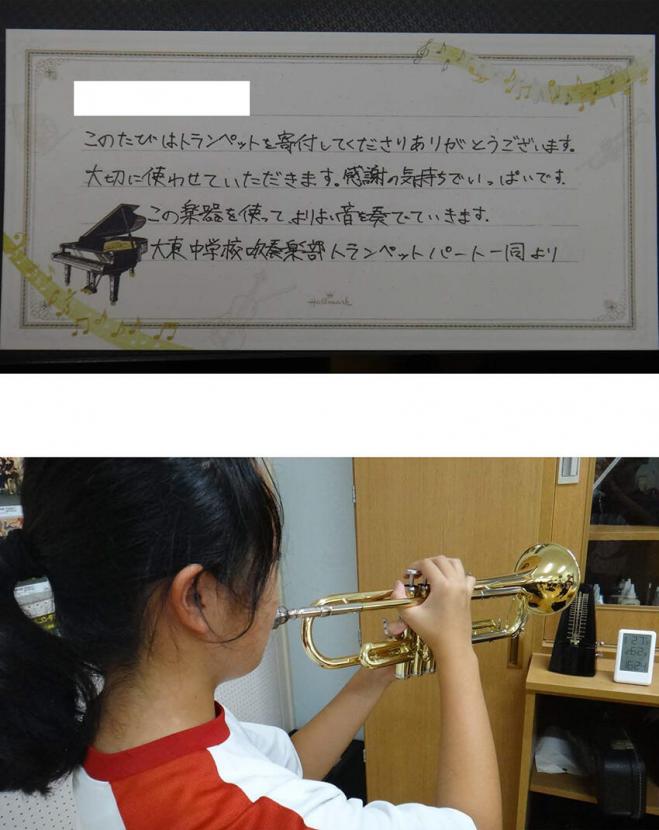 このたびはトランペットを寄付してくださりありがとうございます。
大切に使わせていただきます。感謝の気持ちでいっぱいです。
この楽器を使ってよりよい音を奏でていきます。
大東中学校吹奏楽部トランペットパート一同より
Hallmark